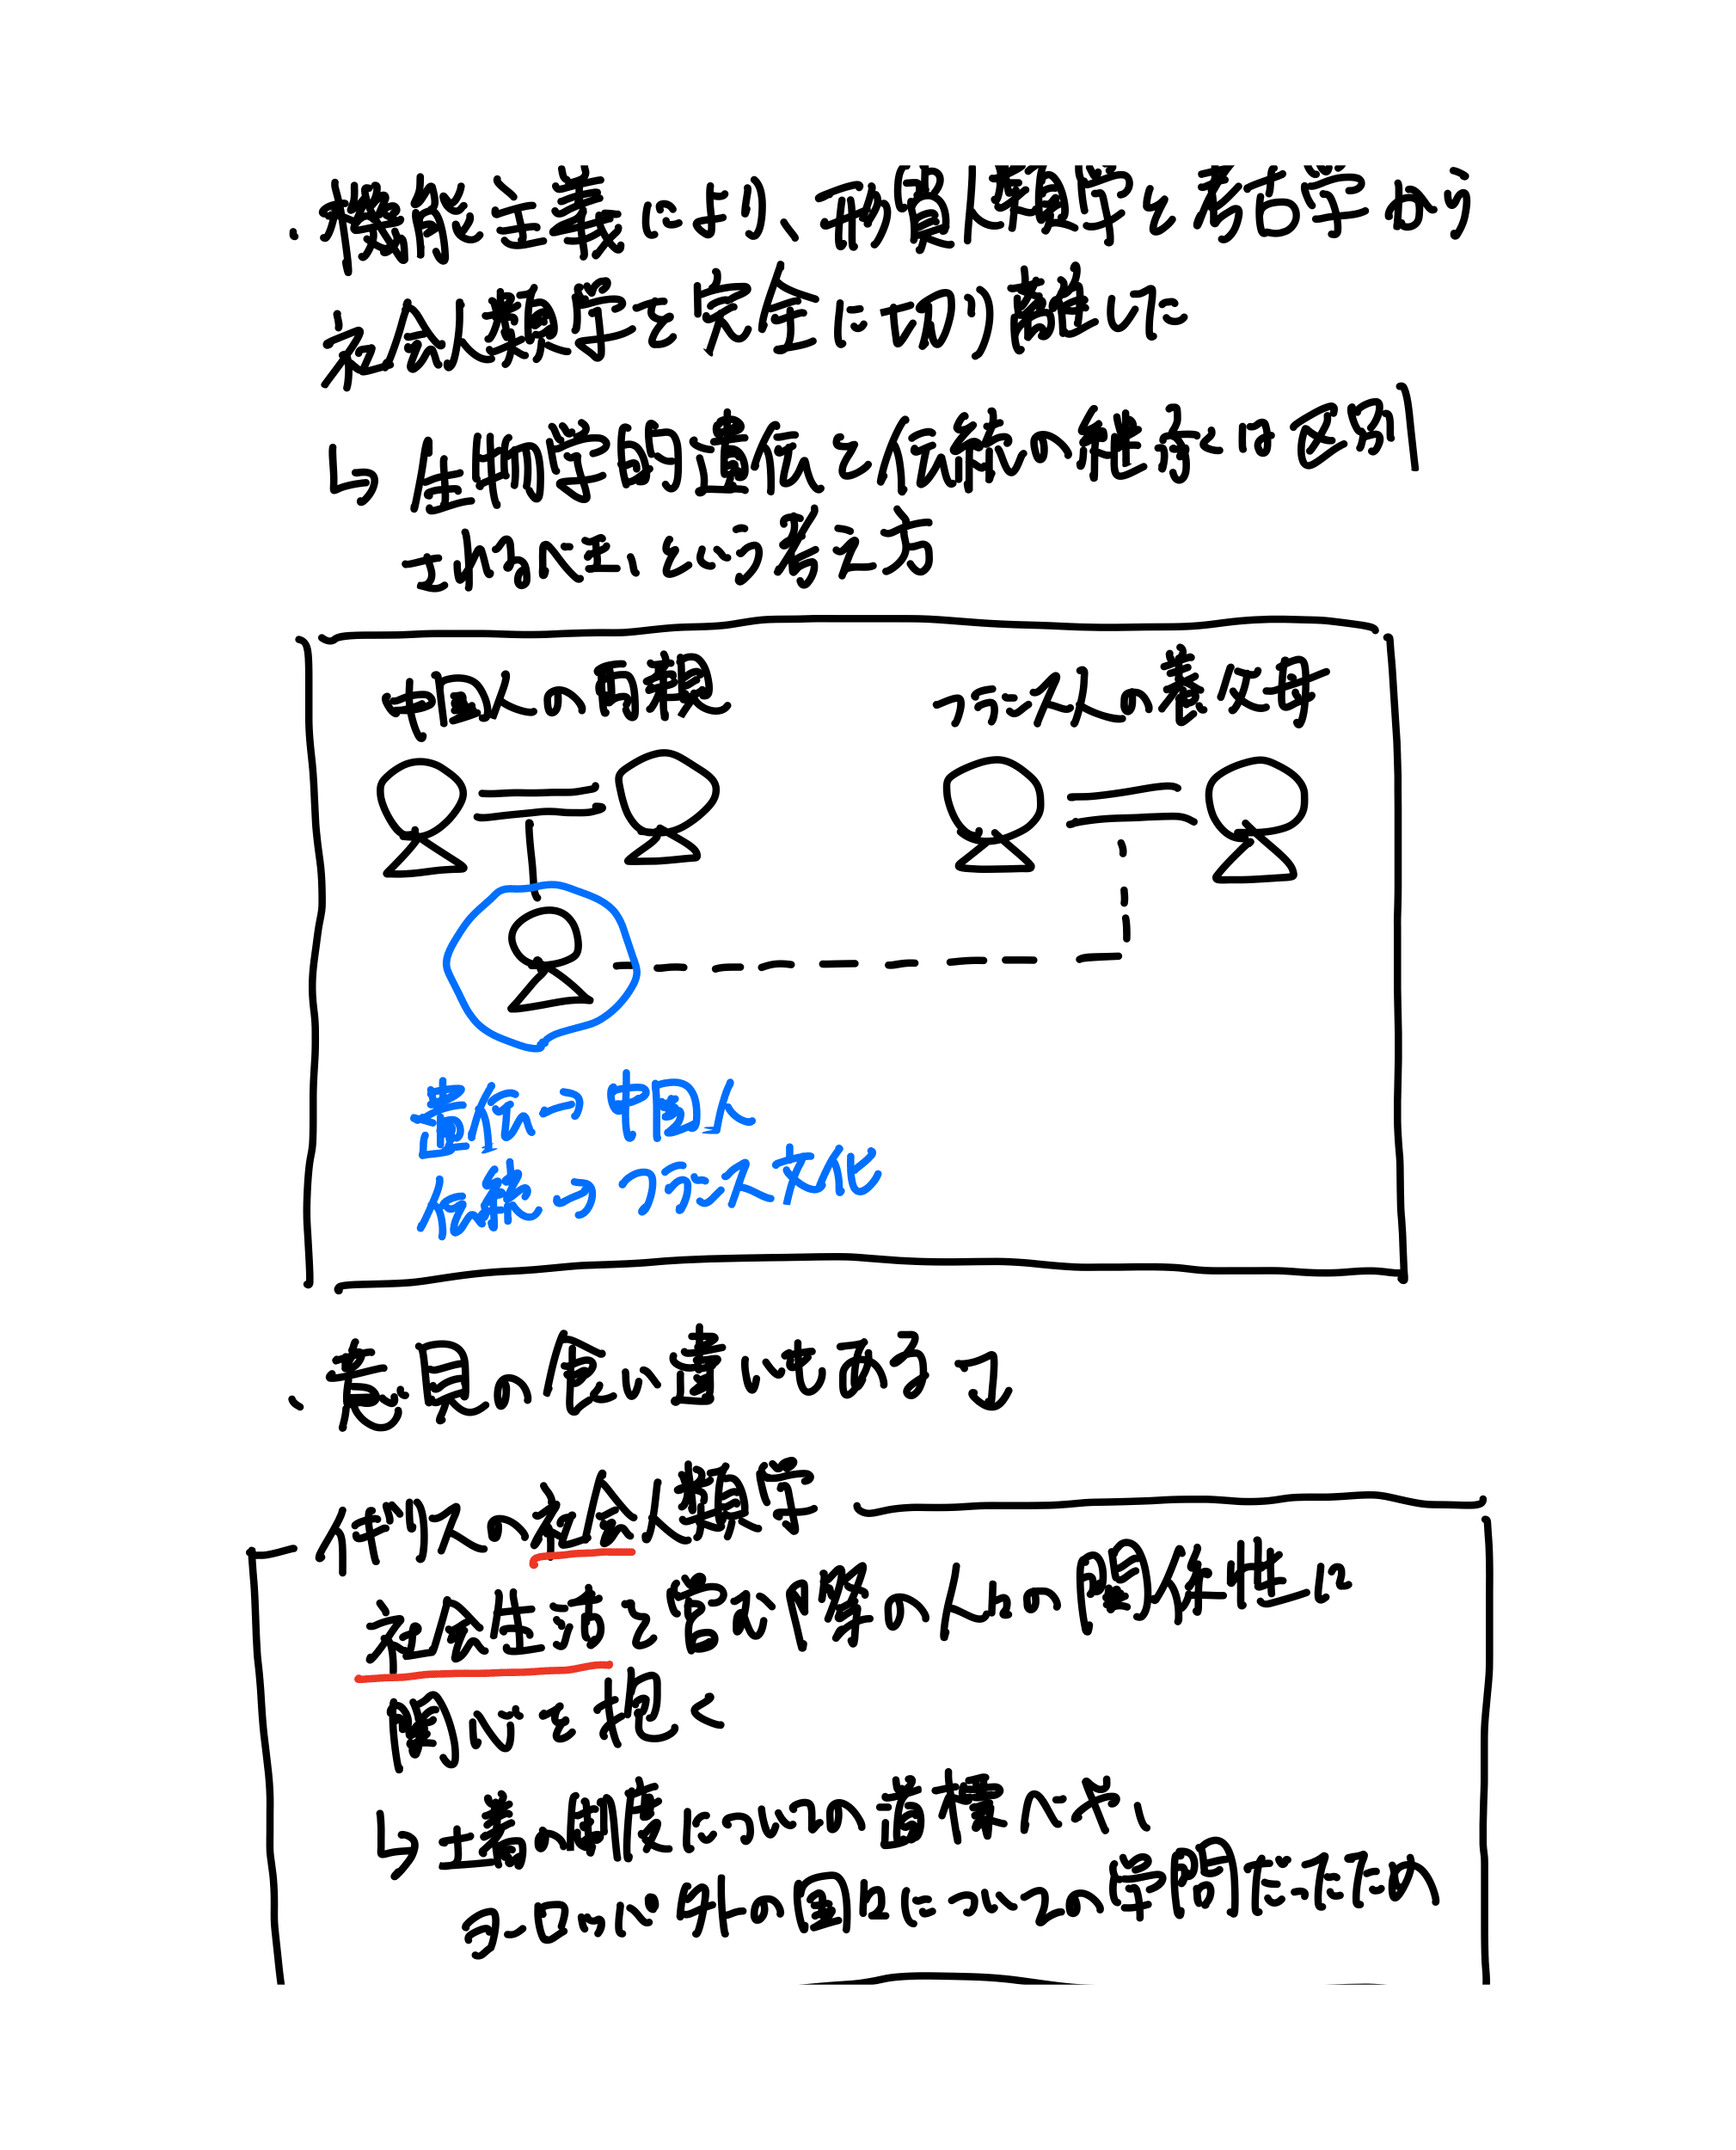 ・機能主義により、形質人類学と考古学から
社会人類学を完全に切り離した
↳ 生物学的遺伝と伝統の継承とは区別
されねばならない、という考え方
中国人の両親
フランス人の養父母
遺伝→中国人
伝統→フランス文化
・意見の食い違いもあるで
イギリスの社会人類学
社会生活と営む内容の人々の関係性に
関心を抱く
↳土着の制度についての首標へ
ヨーロッパ外の国々についての学問だったため